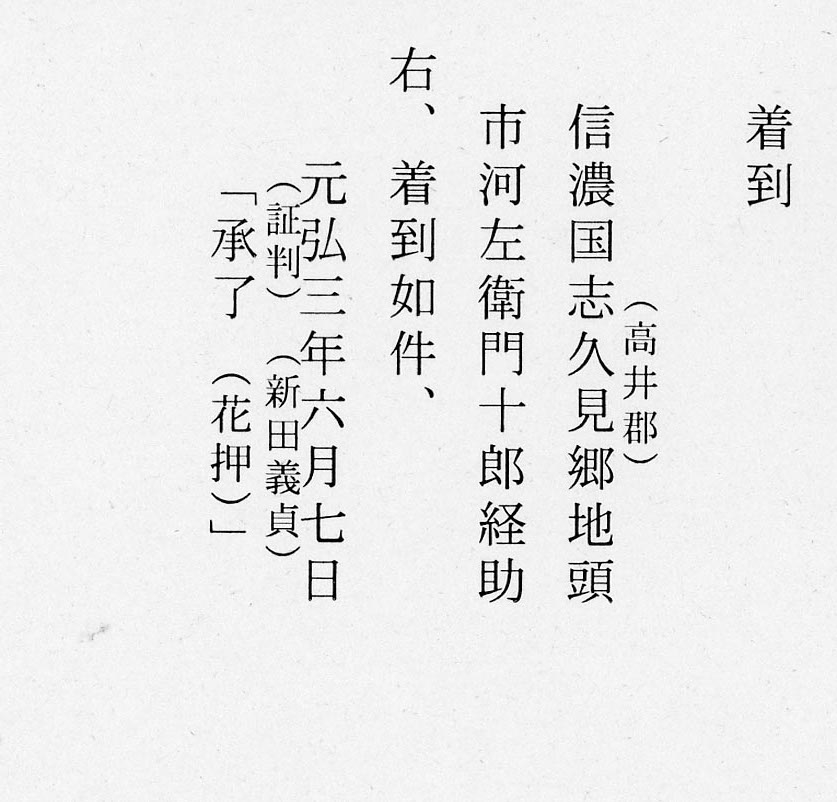 着到
（高井郡）
信濃国志久見郷地頭
市河左衛門十郎経助
右、着到如件、
元弘三年六月七日
（証判）（新田義貞）
「承了（花押）」